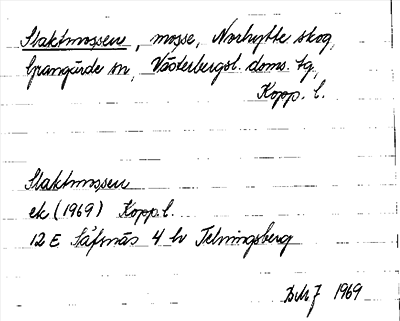 Slaktmossen, mosse, Norhytte skog,
Grangärde sn, Västerbergsl. doms. tg,
Kopp. l.
Slaktmossen
ek (1969) Kopp. l.
12 E Säfsnäs 4 h Telningsberg
1969